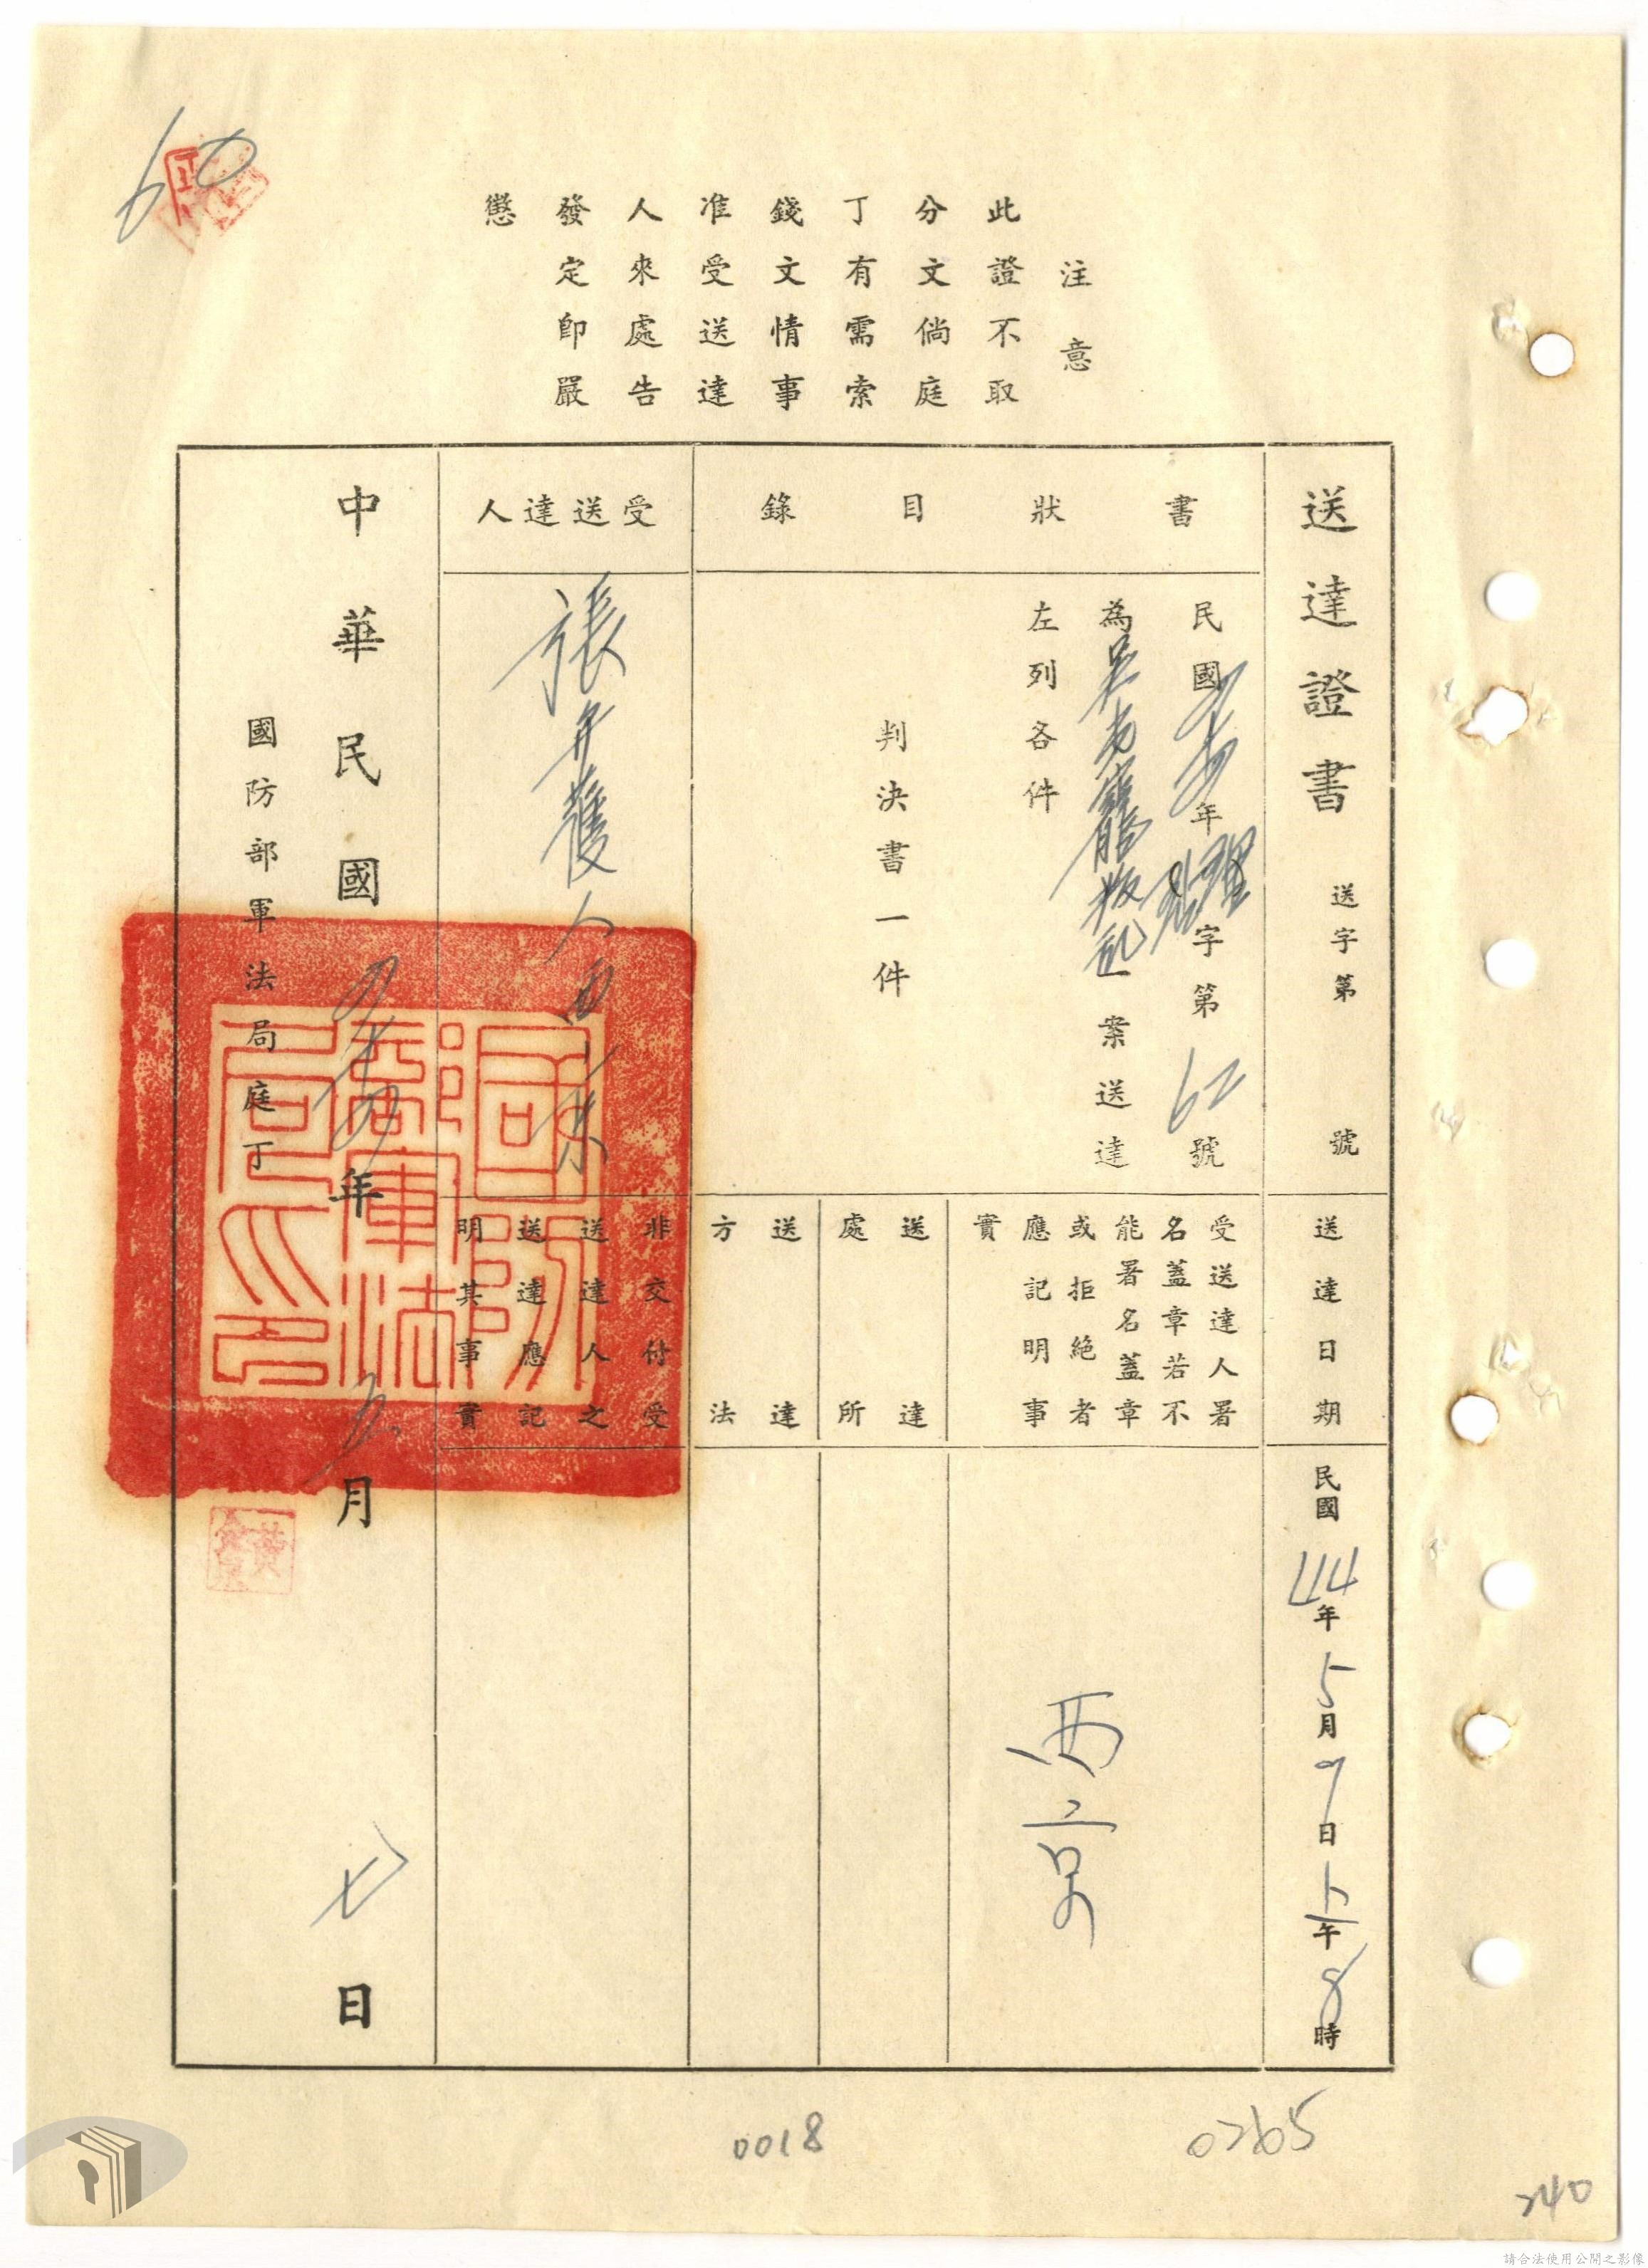 60
注意
此證不取
分文倘庭
丁有需索
錢文情事
准受送達
人來處告
發定即嚴
懲
送達證書 送字第 號
送達日期
民國44年5月9日上午8時
書狀目錄
民國 年 理字第62號
為吳 叛亂一案送達
左列各件
判決書一件
受送達人署
名蓋章若不
能署名蓋章
或拒絕者
應記明事
實
西京
送達
處所
送達
方法
受送達人
張 人西京
非交付受
送達人之
送達應記
明其事實
中華民國四十四年五月七日
國防部軍法局庭丁
國防部軍法局印
黃
0018
0265
240
請合法使用公開之影像